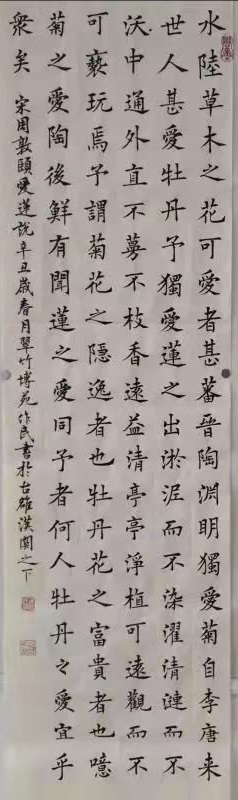 水陸草木之花可愛者甚蕃晉陶淵明獨愛菊自李唐来
世人甚愛牡丹予獨愛蓮之出淤泥而不染濯清漣而不
沃中通外直不蔓不枝香遠益清亭亭淨植可遠觀而不
可褻玩焉予謂菊花之隱逸者也牡丹花之富貴者也噫
菊之愛陶後鮮有聞蓮之愛同予者何人牡丹之愛宜乎
衆矣 宋周敦頤愛蓮說辛丑歲春月翠竹博苑作民書於古雄漢関之下